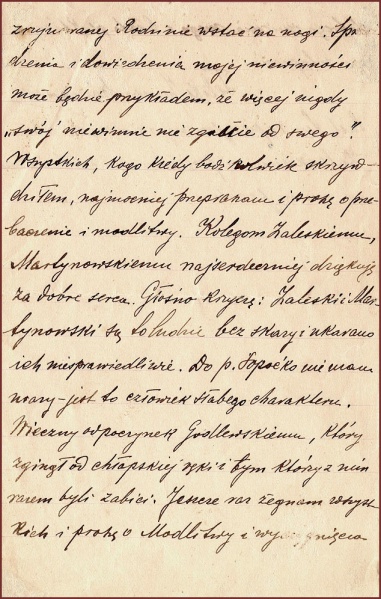 zrujnowanej Rodzinie wstać na nogi.
i dowiedzenia mojej niewinności
może będzie przykładem, że więcej nigdy
„swój niewinnie nie zginie od swego".
Wszystkich, kogo kiedy bądź kolwiek skrzyw-
dziłem, najmocniej przepraszam i proszę o prze-
baczenie i modlitwy. Kolegom Zaleskiemu,
Martynowskiemu najserdeczniej dziękuję
za dobre serca. Głośno krzyczę: Zaleski i Mar-
tynowski są to ludzie bez skazy i ukarano
ich niesprawiedliwie. Do p. Sopoćko nie mam
urazy - jest to człowiek słabego charakteru.
Wieczny odpoczynek Godlewskiemu, który
zginął od chłopskiej ręki i tym którzy z nim
razem byli zabici. Jeszcze raz żegnam wszyst-
kich i proszę o Modlitwy i